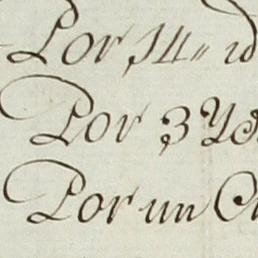 Por 14 id
Por 3 Yd
Por un